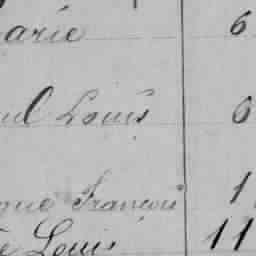 arie 6
ul Louis 6
que François 1
e Louis 11